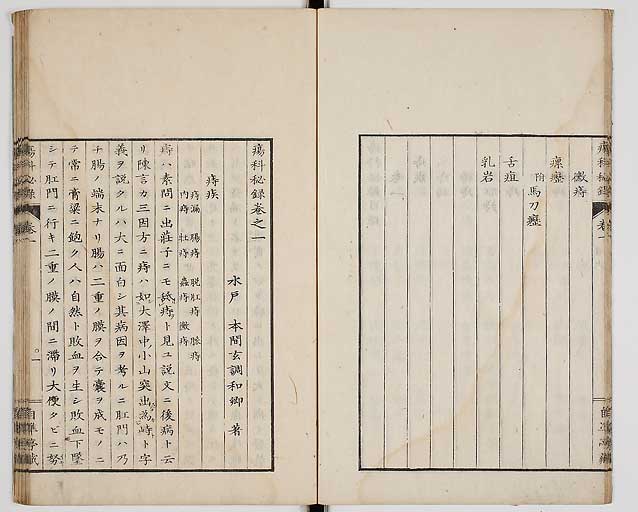 黴痔
瘰癧
附 馬刀癧
舌疽
乳岩
瘍科秘録
卷一
瘍科秘録卷之一
水戸 本間玄調和卿 著
痔疾
痔漏 腸痔 脱肛痔 脉痔
内痔 牡痔 蟲痔 黴痔
痔ハ素問ニ出荘子ニモ舐痔ト見ユ説文ニ後病ト云
リ陳言カ三因方ニ痔ハ如大澤中小山突出為峙ト字
義ヲ説クルハ大ニ面白シ其病因ヲ考ルニ肛門ハ乃
チ腸ノ端末ナリ腸ハ二重ノ膜ヲ合テ嚢ヲ成モノニ
テ常ニ膏粱ニ飽ク人ハ自然ト敗血ヲ生シ敗血下墜
シテ肛門ニ行キ二重ノ膜ノ間ニ滞リ大便タビニ努
瘍科秘録
卷一
〇一